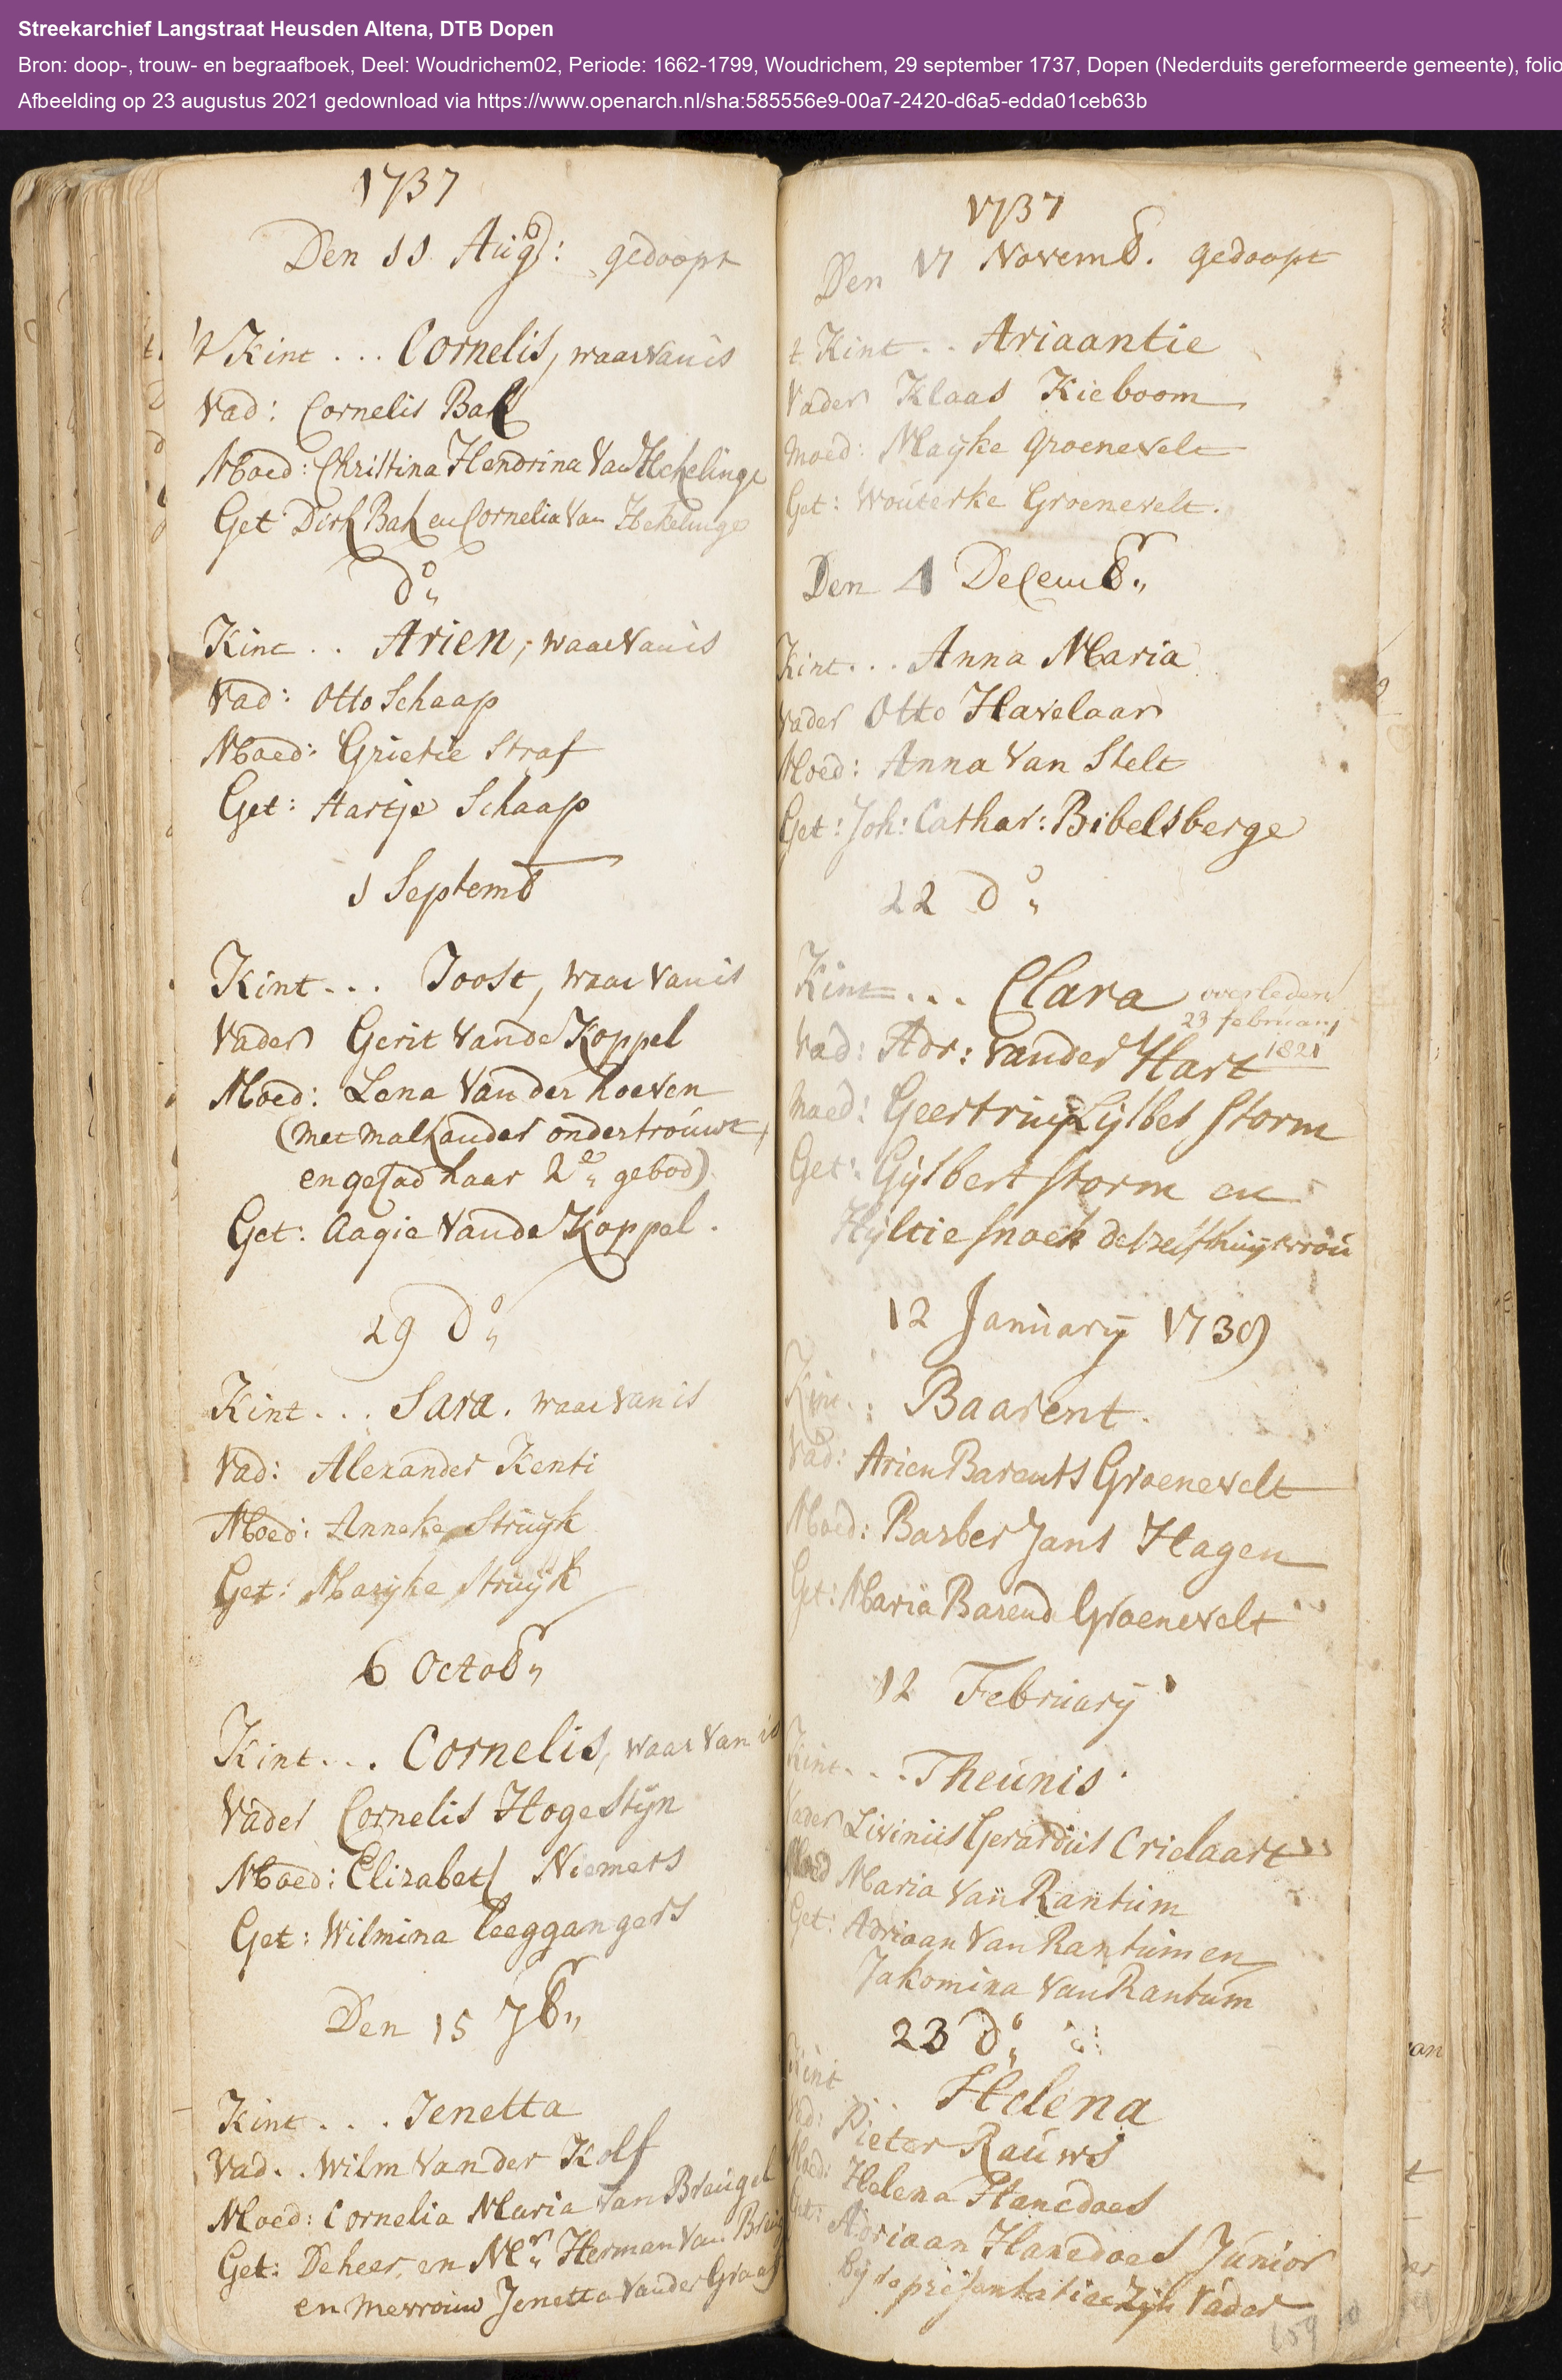 Streekarchief Langstraat Heusden Altena, DTB Dopen
Bron: doop-, trouw- en begraafboek, Deel: Woudrichem02, Periode: 1662-1799, Woudrichem, 29 september 1737, Dopen (Nederduits gereformeerde gemeente), folio
Afbeelding op 23 augustus 2021 gedownload via https://www.openarch.nl/sha:585556e9-00a7-2420-d6a5-edda01ceb63b
1737
Den 11 Aug: gedoopt
't Kint ... Cornelis, waarvan is
Vad: Cornelis Bak
Moed: Christina Hendrina Van Hekelinge
Get Dirk Bak en Cornelia Van Hekelinge
do
Kint .. Arien, waarvan is
Vad: Otto Schaap
Moed: Grietie Straf
Get: Aartje Schaap
1 Septemb
Kint ... Joost, waarvan is
Vader Gerit Vande Koppel
Moed: Lena Vander hoeven
(met malkander ondertrouwt,
en gehad haar 2e gebod)
Get: Aagie Vande Koppel.
29 do
Kint ... Sara. waarvan is
Vad: Alexander Kenti
Moed: Anneke Struyk
Get: Maryke Struyk
6 Octobr
Kint ... Cornelis, waarvan is
Vader Cornelis Hogestijn
Moed: Elizabet Niemers
Get: Wilmina Leeggangers
Den 15 7br
Kint ... Jenetta
Vad.. Wilm Vander Kolf
Moed: Cornelia Maria Van Breugel
Get: De heer en Mr Herman Van
en mevrouw Jenetta Vander Graaf
1737
Den 17 Novemb. gedoopt
t Kint .. Ariaantie
Vader Klaas Kieboom
Moed: Mayke Groenevelt
Get: Wouterke Groenevelt.
Den 1 Decembr
Kint ... Anna Maria
Vader Otto Havelaar
Moed: Anna Van Stelt
Get: Joh: Cathar: Bibelsberge
22 do
Kint ... Clara overleden
23 february
Vad: Adr: Vander Hart 1821
Moed: Geertruy Gijlbet Storm
Get: Gijlbert Storm en
Hyltie Snoek deszelfs huysvrou
12 January 1738
Kint .. Baarent.
Vad: Arien Barents Groenevelt
Moed: Barber Jans Hagen
Get: Maria Barend Groenevelt
12 February
Kint ... Theunis
Vader Livinus Gerardus Crielaart
Moed Maria Van Rantum
Get: Adriaan Van Rantum en
Jakomina Van Rantum
23 do
Kint .. Helena
Vad: Pieter Rauws
Moed: Helena Hanedoes
Get: Adriaan Hanedoes Junior
bij representatie zijn Vader
159